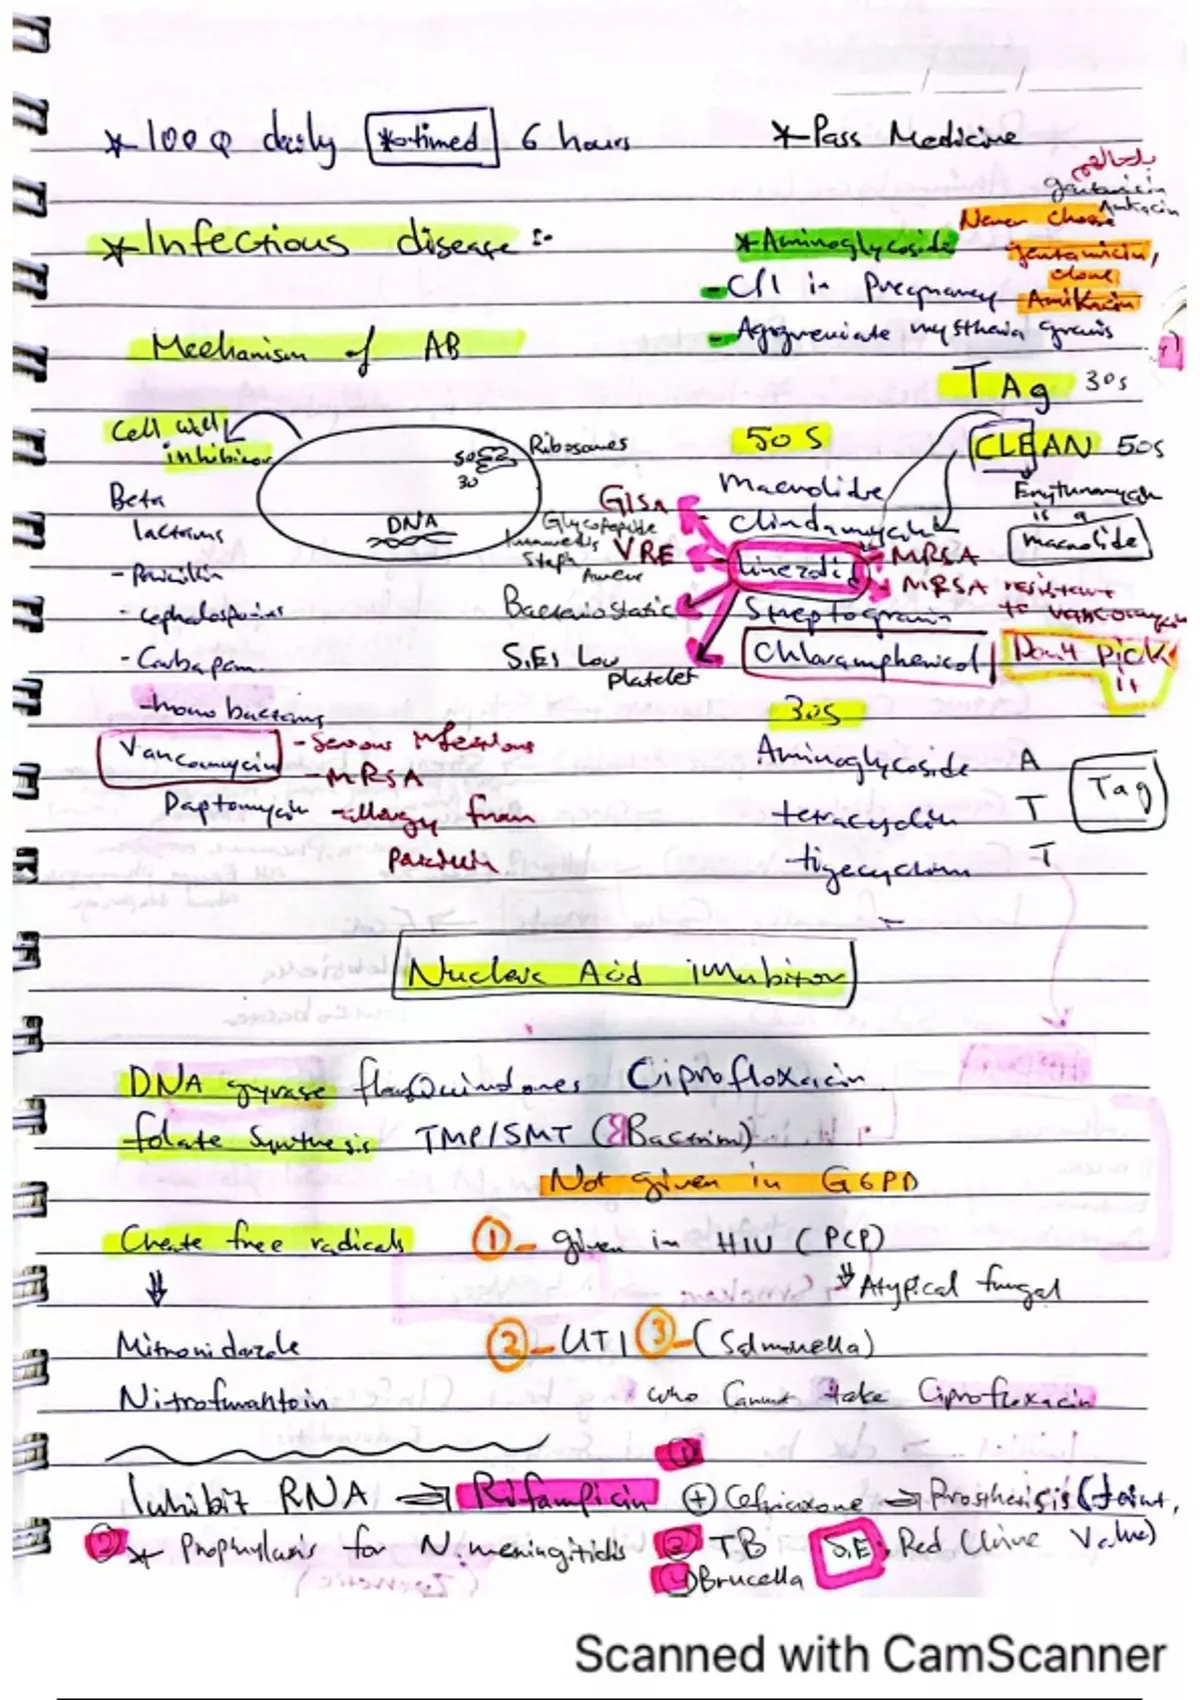 *100 Q daily *timed 6 hours
*Pass Medicine
gentamicin
Amikacin
Never choose
gentamicin,
alone
Amikacin
*Infectious disease :-
*Aminoglycoside
- C/I in Pregnancy
- Aggreviate mysthenia gravis
Mechanism of AB
TAg 30s
Cell wall
inhibitor
50 S
CLEAN 50s
Ribosomes
50
30
DNA
Beta
lactams
- Penicillin
- cephalosporins
- Carbapam
- mono bactams
Vancomycin
- Serous infections
- MRSA
Daptomycin - allergy from
Penicillin
Macrolide
Erythromycin
is a
macrolide
- Clindamycin
GISA
Glycopeptide
Staph
Aureus
VRE
Linezolid
MRSA
MRSA resistant
to vancomycin
Bacteriostatic
S.Es Low
platelet
Streptogramin
Chloramphenicol
Don't PicK
it
30S
Aminoglycoside A
tetracyclin T
tigecyclin T
Tag
Nucleic Acid inhibitor
DNA gyrase floroQuinolones Ciprofloxacin
folate Synthesis TMP/SMT (Bactrim)
Not given in G6PD
Create free radicals
① - given in HIV (PCP)
Atypical fungal
Mitronidazole
② - UTI ③ - (Salmonella)
Nitrofurantoin
who Cannot take Ciprofloxacin
Inhibit RNA ⇒ Rifampicin
① + Ceftriaxone → Prosthesis (Joint, Valve)
② * Prophylaxis for N. meningitidis
③ TB
④ Brucella
S.E: Red Urine
Scanned with CamScanner